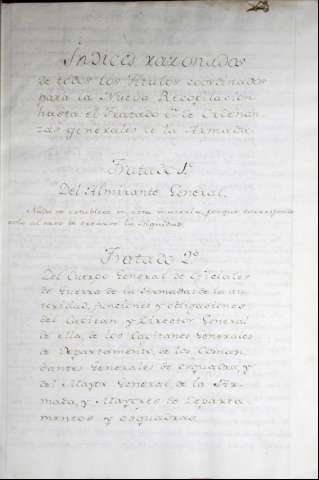 Indices razonados
de todos los titulos coordinados
para la Nueva Recopilacion
hasta el Tratado de Ordenan
zas generales de la Armada.
Tratado 1º
Del Almirante General.
Nada se establece en esta materia, porque corresponde
solo al caso de crearse la Dignidad.
Tratado 2º
Del Cuerpo General de Oficiales
de Guerra de la Armada: de la au
toridad, funciones y obligaciones
del Capitan y Director General
de ella, de los Capitanes Generales
de Departamento, de los Coman
dantes Generales de esquadra, y
del Mayor General de la Ar
mada, y Mayores de Departa
mentos y esquadras.